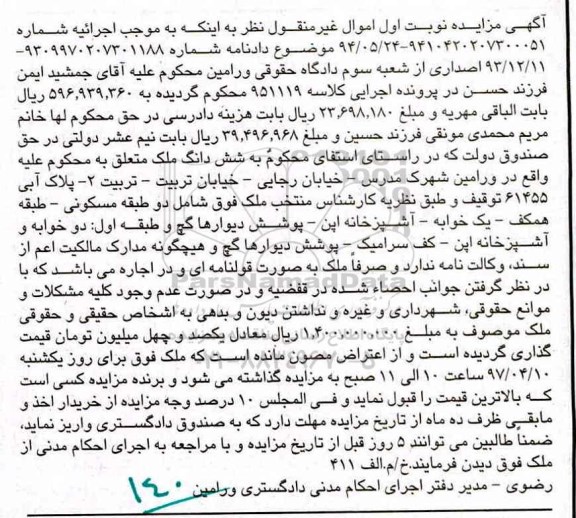 آگهی مزایده نوبت اول اموال غیرمنقول نظر به اینکه به موجب اجرائیه شماره
۹۴۱۰۴۲۰۲۰۷۳۰۰۰۵۱-۹۴/۰۵/۲۴ موضوع دادنامه شماره ۹۳۰۹۹۷۰۲۰۷۳۰۱۱۸۸-
۹۳/۱۲/۱۱ اصداری از شعبه سوم دادگاه حقوقی ورامین محکوم علیه آقای جمشید ایمن
فرزند حسن در پرونده اجرایی کلاسه ۹۵۱۱۱۹ محکوم گردیده به ۵۹۶,۹۳۹,۳۶۰ ریال
بابت الباقی مهریه و مبلغ ۲۳,۶۹۸,۱۸۰ ریال بابت هزینه دادرسی در حق محکوم لها خانم
مریم محمدی مونقی فرزند حسین و مبلغ ۳۹,۴۹۶,۹۶۸ ریال بابت نیم عشر دولتی در حق
صندوق دولت که در راستای استفای محکوم به شش دانگ ملک متعلق به محکوم علیه
واقع در ورامین شهرک مدرس - خیابان رجایی - خیابان تربیت - تربیت ۲- پلاک آبی
۶۱۴۵۵ توقیف و طبق نظریه کارشناس منتخب ملک فوق شامل دو طبقه مسکونی - طبقه
همکف - یک خوابه - آشپزخانه اپن - پوشش دیوارها گچ و طبقه اول: دو خوابه و
آشپزخانه اپن - کف سرامیک - پوشش دیوارها گچ و هیچگونه مدارک مالکیت اعم از
سند، وکالت نامه ندارد و صرفاً ملک به صورت قولنامه ای و در اجاره می باشد که با
در نظر گرفتن جوانب احصاء شده در فقضیه و در صورت عدم وجود کلیه مشکلات و
موانع حقوقی، شهرداری و غیره و نداشتن دیون و بدهی به اشخاص حقیقی و حقوقی
ملک موصوف به مبلغ ۱,۴۰۰,۰۰۰,۰۰۰ ریال معادل یکصد و چهل میلیون تومان قیمت
گذاری گردیده است و از اعتراض مصون مانده است که ملک فوق برای روز یکشنبه
۹۷/۰۴/۱۰ ساعت ۱۰ الی ۱۱ صبح به مزایده گذاشته می شود و برنده مزایده کسی است
که بالاترین قیمت را قبول نماید و فی المجلس ۱۰ درصد وجه مزایده از خریدار اخذ و
مابقی ظرف ده ماه از تاریخ مزایده مهلت دارد که به صندوق دادگستری واریز نماید،
ضمناً طالبین می توانند ۵ روز قبل از تاریخ مزایده و با مراجعه به اجرای احکام مدنی از
ملک فوق دیدن فرمایند.خ/م.الف ۴۱۱
رضوی - مدیر دفتر اجرای احکام مدنی دادگستری ورامین ۱۴۰
ParsNamadData